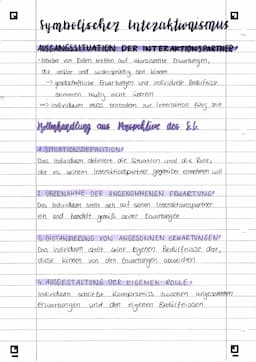 Symbolischer Interaktionismus
AUSGANGSSITUATION DER INTERAKTIONSPARTNER:
- Inhaber von Rollen treffen auf Erwartungen,
die unklar und widersprüchlig sein können
→ gesellschaftliche Erwartungen und individuelle Bedürfnisse
stimmen häufig nicht überein
⇒ Individuum muss trotzdem zur Interaktion fähig sein
Rollenhandlung aus Perspektive des S.I.
1. SITUATIONSDEFINITION:
Das Individuum definiert die Situation und die Rolle,
die es seinem Interaktionspartner gegenüber einnehmen will
2. ÜBERNAHME DER ANGENOMMENEN ERWARTUNG:
Das Individuum stellt sich auf seinen Interaktionspartner
ein und handelt gemäß seiner Erwartungen
3. DISTANZIERUNG VON ANGESONNEN ERWARTUNGEN:
Das Individuum stellt seine eigenen Bedürfnisse dar,
diese können von den Erwartungen abweichen
4. AUSGESTALTUNG DER EIGENEN ROLLE:
Individuum schließt Kompromiss zwischen angesonnenen
Erwartungen und den eigenen Bedürfnissen